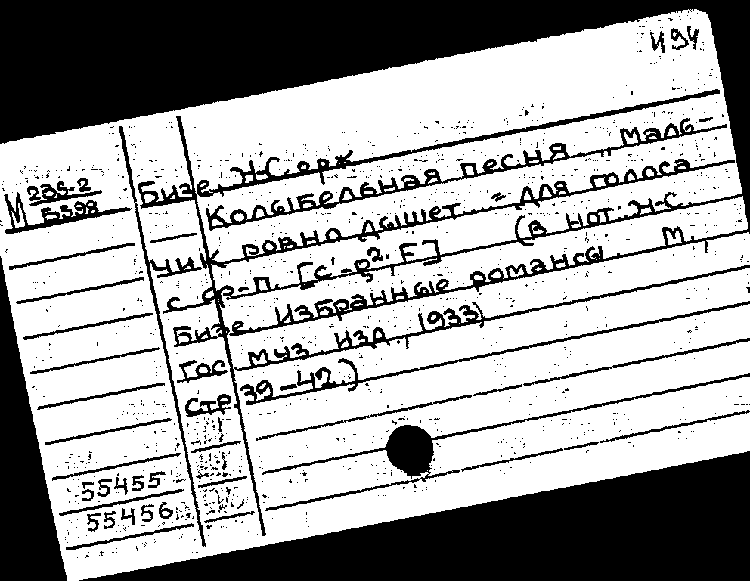 И94
М 285-2
Б398
Бизе, Ж.орж
Колыбельная песня „Маль-
чик ровно дышет..." для голоса
с фр-п. [c'-g², F] (В нот: Ж.
Бизе. Избранные романсы. М.,
Гос. муз. изд., 1933)
Стр. 39-42.)
55455
55456